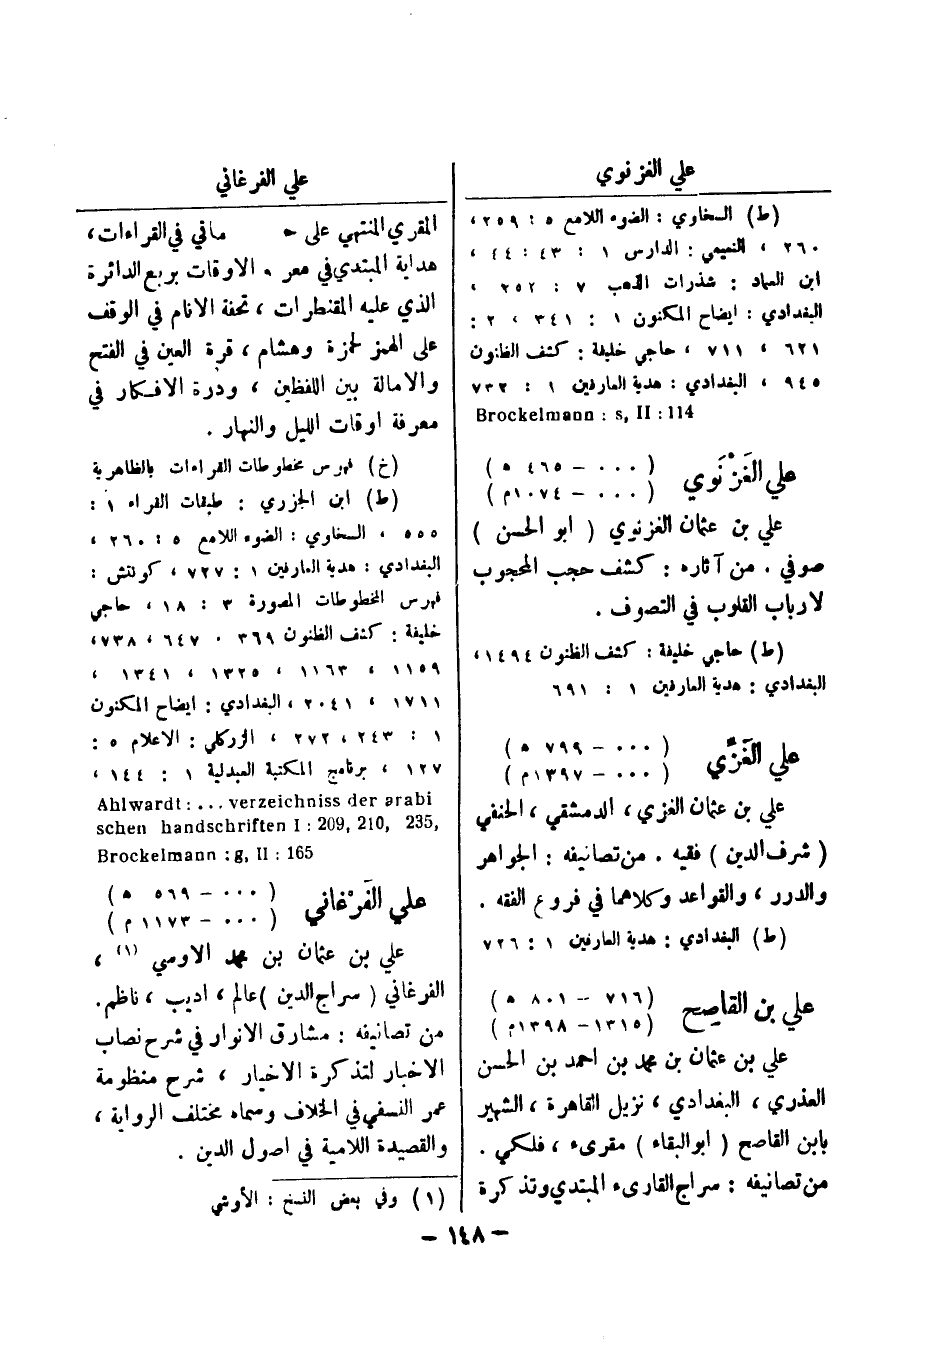 علي الغزنوي
(ط) السخاوي : الضوء اللامع ٥ : ٢٥٩،
٢٦٠ ، النعيمي : الدارس ١ : ٤٣ : ٤٤ ،
ابن العماد : شذرات الذهب ٧ : ٢٥٢ ،
البغدادي : ايضاح المكنون ١ : ٣٤١ ، ٢ :
٦٢١ ، ٧١١ ، حاجي خليفة : كشف الظنون
٩٤٥ ، البغدادي : هدية العارفين ١ : ٧٣٢
Brockelmann : s, II : 114
علي الغَزْنَوي
( ٠٠٠ - ٤٦٥ ه )
( ٠٠٠ - ١٠٧٤م )
علي بن عثمان الغزنوي ( ابو الحسن )
صوفي . من آثاره : كشف حجب المحجوب
لارباب القلوب في التصوف .
(ط) حاجي خليفة : كشف الظنون ١٤٩٤،
البغدادي : هدية العارفين ١ : ٦٩١
علي الغَزِّي
( ٠٠٠ - ٧٩٩ ه )
( ٠٠٠ - ١٣٩٧م )
علي بن عثمان الغزي ، الدمشقي ، الحنفي
( شرف الدين ) فقيه . من تصانيفه : الجواهر
والدرر ، والقواعد وكلاهما في فروع الفقه .
(ط) البغدادي : هدية العارفين ١ : ٧٢٦
علي بن القاصِح
(٧١٦ - ٨٠١ ه )
(١٣١٥ - ١٣٩٨م )
علي بن عثمان بن محمد بن احمد بن الحسن
العذري ، البغدادي ، نزيل القاهرة ، الشهير
بابن القاصح ( ابو البقاء ) مقرىء ، فلكي .
من تصانيفه : سراج القارىء المبتدي وتذكرة
علي الفرغاني
المقري المنتهي على ماقي في القراءات،
هداية المبتدي في معر . الاوقات بربع الدائرة
الذي عليه المقنطرات ، تحفة الانام في الوقف
على الهمز لحمزة وهشام ، قرة العين في الفتح
والامالة بين اللفظين ، ودرة الافكار في
معرفة اوقات الليل والنهار .
(خ) فهرس مخطوطات القراءات بالظاهرية
(ط) ابن الجزري : طبقات القراء ١ :
٥٥٥ ، السخاوي : الضوء اللامع ٥ : ٢٦٠ ،
البغدادي : هدية العارفين ١ : ٧٢٧ ، كوتنش :
فهرس المخطوطات المصورة ٣ : ١٨ ، حاجي
خليفة : كشف الظنون ٣٦٩ ، ٦٤٧ ، ٧٣٨،
١١٥٩ ، ١١٦٣ ، ١٣٢٥ ، ١٣٤١ ،
١٧١١ ، ٢٠٤١ ، البغدادي : ايضاح المكنون
١ : ٢٤٣ ، ٢٧٢ ، الزركلي : الاعلام ٥ :
١٢٧ ، برنامج المكتبة العبدلية ١ : ١٤٤ ،
Ahlwardt : ... verzeichniss der arabi
schen handschriften I : 209, 210, 235,
Brockelmann : g, II : 165
علي الفَرْغاني
( ٠٠٠ - ٥٦٩ ه )
( ٠٠٠ - ١١٧٣ م )
علي بن عثمان بن محمد الاوسي (١) ،
الفرغاني ( سراج الدين ) عالم ، اديب ، ناظم .
من تصانيفه : مشارق الانوار في شرح نصاب
الاخبار لتذكرة الاخيار ، شرح منظومة
عمر النسفي في الخلاف وسماه مختلف الرواية ،
والقصيدة اللامية في اصول الدين .
(١) وفي بعض النسخ : الأوشي
- ١٤٨ -